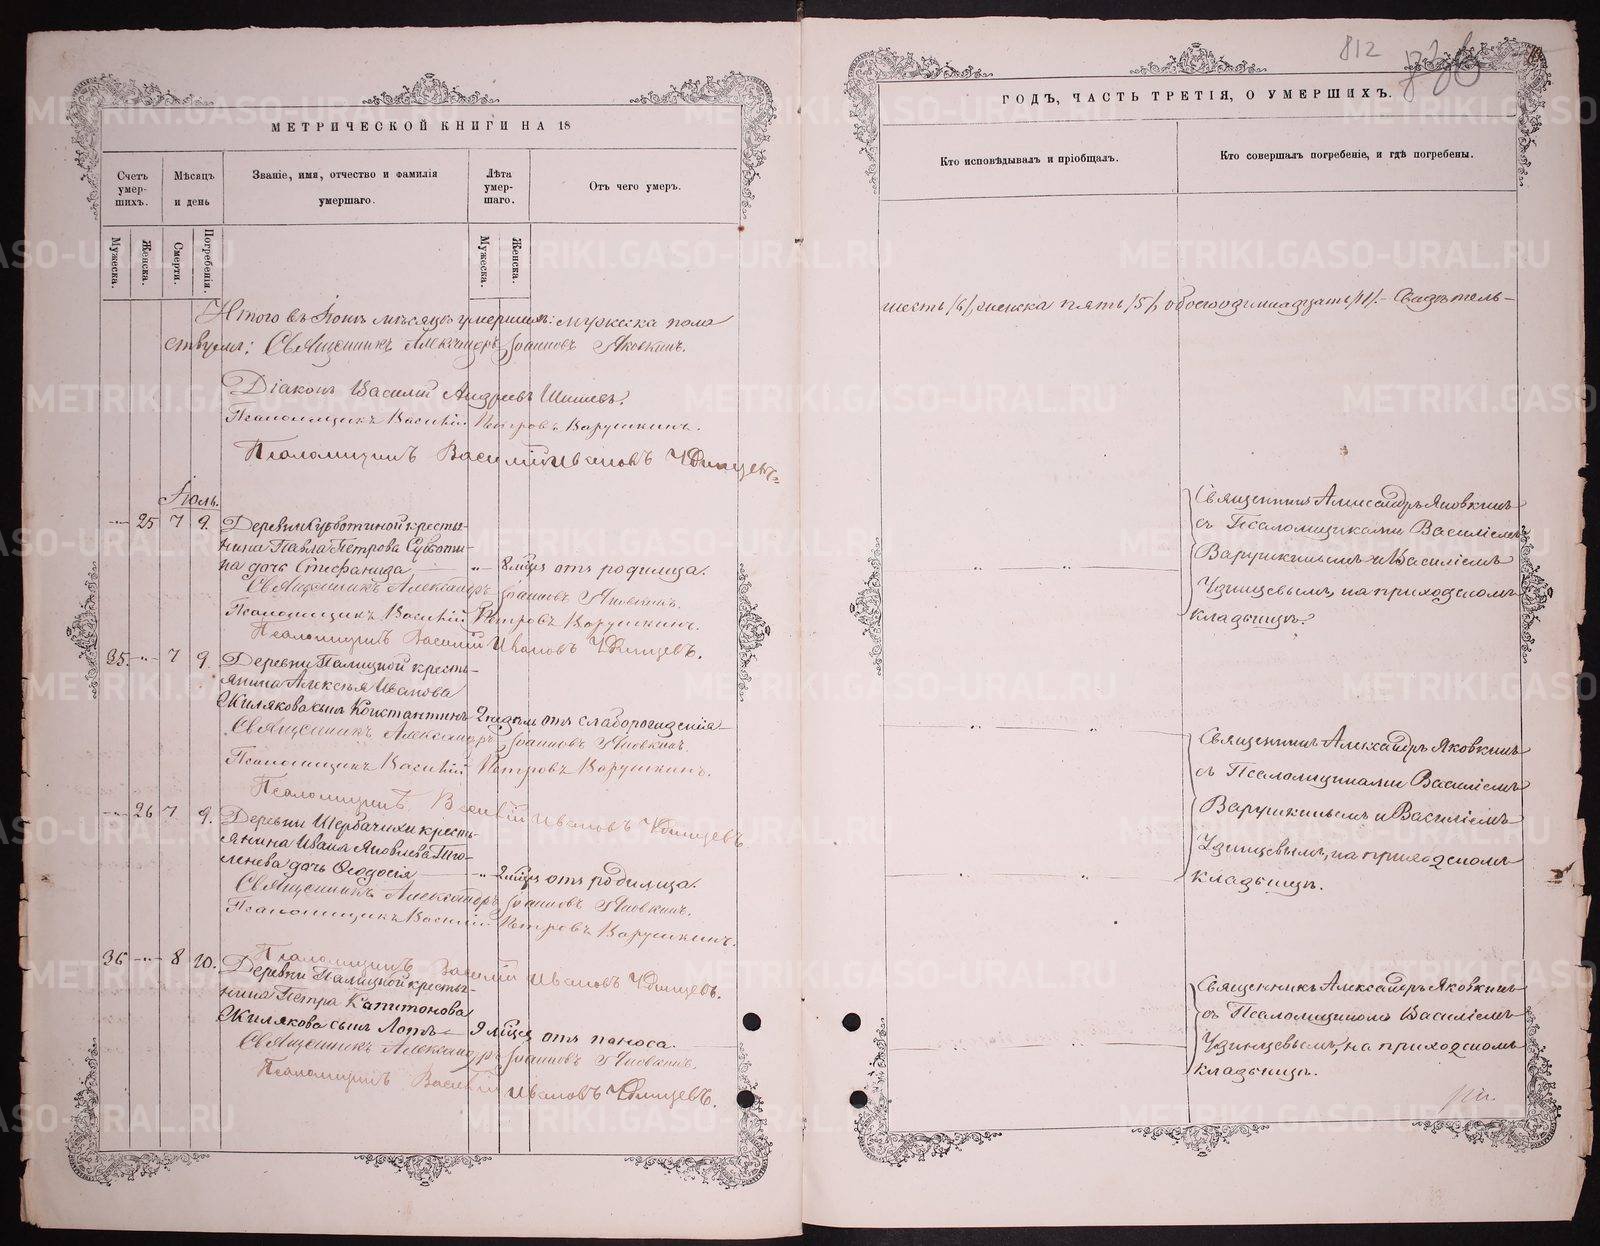 812
МЕТРИЧЕСКОЙ КНИГИ НА 18
Счетъ умер-шихъ.
Мѣсяцъ и день
Званіе, имя, отчество и фамилія умершаго.
Лѣта умер-шаго.
Отъ чего умеръ.
Мужеска.
Женска.
Смерти.
Погребенія.
Мужеска.
Женска.
Итого въ Іюнѣ мѣсяцѣ умершихъ: мужеска пола
ствуемъ: Священникъ Александръ Іоанновъ Яковкинъ.
Діаконъ Василій Андреевъ
Псаломщикъ Василій Петровъ Варушкинъ.
Псаломщикъ Василій Ивановъ Удинцевъ.
Іюль.
-"- 25 7 9. Деревни Субботиной кресть-
янина Павла Петрова Суботи-
на дочь Стефанида — " 8 мѣся. отъ родимца.
Священникъ Александръ Іоанновъ Яковкинъ.
Псаломщикъ Василій Петровъ Варушкинъ.
Псаломщикъ Василій Ивановъ Удинцевъ.
35. -"- 7 9. Деревни Палицкой кресть-
янина Алексѣя Иванова
Жилякова сынъ Константинъ 2 недѣли отъ слаборожденія
Священникъ Александръ Іоанновъ Яковкинъ.
Псаломщикъ Василій Петровъ Варушкинъ.
Псаломщикъ Василій Ивановъ Удинцевъ
-"- 26 7 9. Деревни Щербачихи кресть-
янина Ивана Яковлева
дочь Ѳеодосія — " 2 мѣся. отъ родимца.
Священникъ Александръ Іоанновъ Яковкинъ.
Псаломщикъ Василій Петровъ Варушкинъ.
Псаломщикъ Василій Ивановъ Удинцевъ.
36 -"- 8 10. Деревни Палицкой кресть-
янина Петра Капитонова
Жилякова сынъ — 9 мѣся. отъ поноса.
Священникъ Александръ Іоанновъ Яковкинъ.
Псаломщикъ Василій Ивановъ Удинцевъ.
ГОДЪ, ЧАСТЬ ТРЕТІЯ, О УМЕРШИХЪ.
Кто исповѣдывалъ и пріобщалъ.
Кто совершалъ погребеніе, и гдѣ погребены.
шесть /6/, женска пять /5/, обоего одиннадцать /11/. - Свидѣтель-
Священникъ Александръ Яковкинъ
съ Псаломщиками Василіемъ
Варушкинымъ и Василіемъ
Удинцевымъ, на приходскомъ
кладбищѣ.
Священникъ Александръ Яковкинъ
съ Псаломщиками Василіемъ
Варушкинымъ и Василіемъ
Удинцевымъ, на приходскомъ
кладбищѣ.
Священникъ Александръ Яковкинъ
съ Псаломщикомъ Василіемъ
Удинцевымъ, на приходскомъ
кладбищѣ.
METRIKI.GASO-URAL.RU